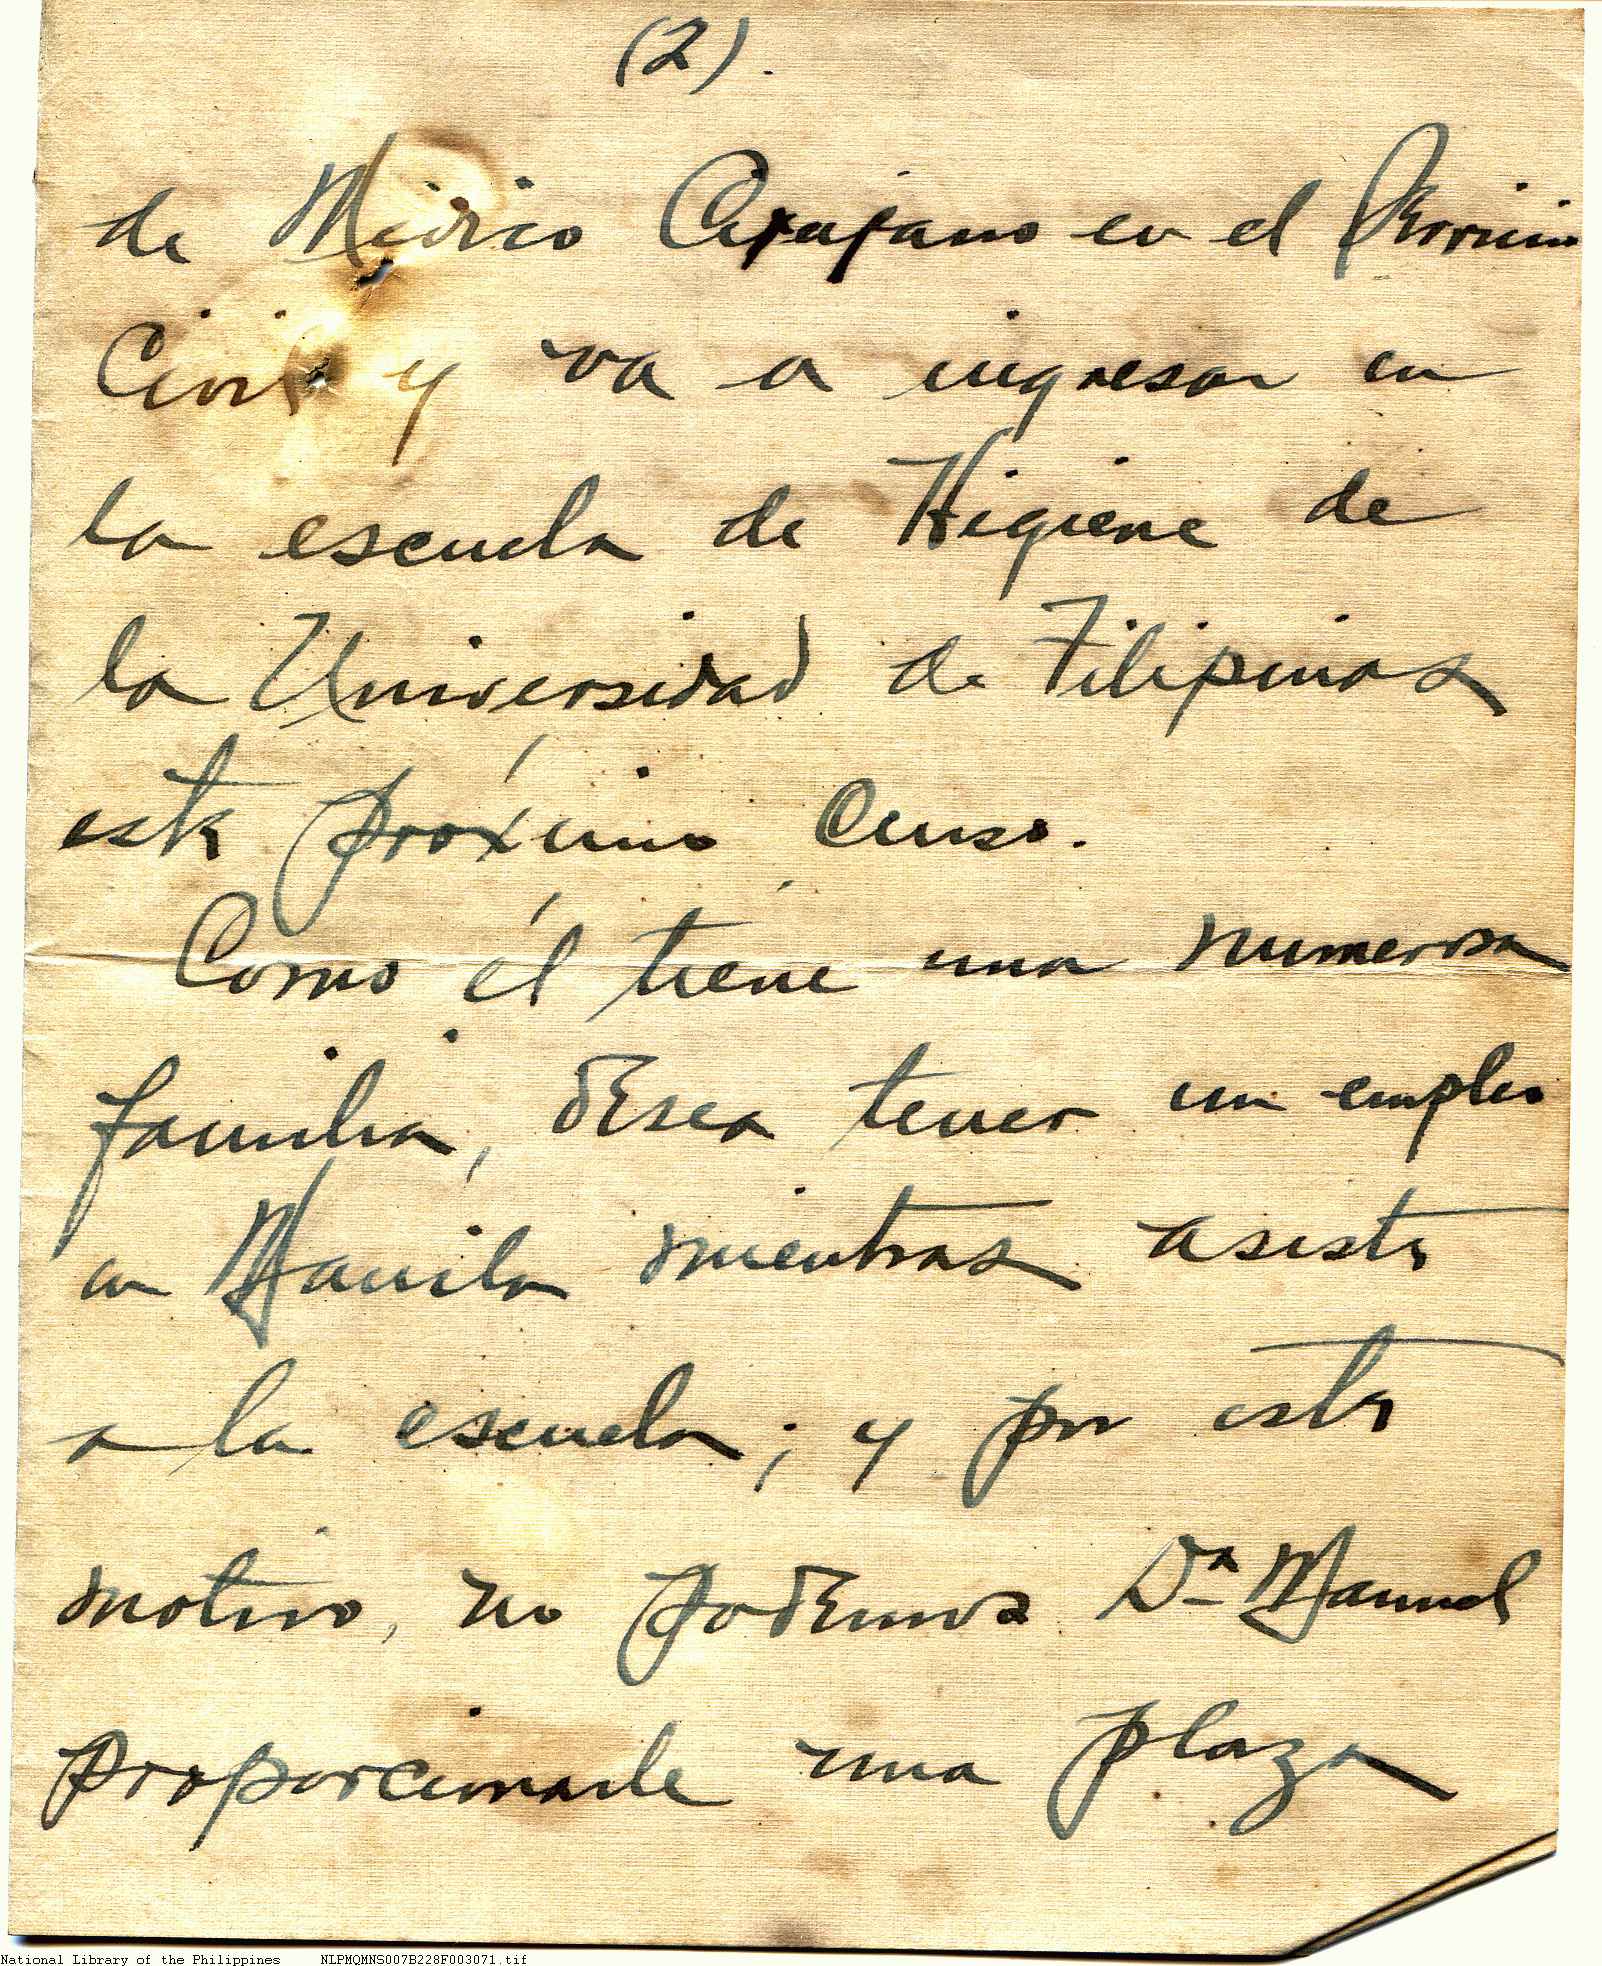 (2).
de Médico Cirujano en el Servicio
Civil y va a ingresar en
la escuela de Higiene de
la Universidad de Filipinas
este próximo curso.
Como él tiene una numerosa
familia, desea tener un empleo
en Manila mientras asiste
a la escuela; y por este
motivo, no podemos Dn. Manuel
proporcionarle una plaza
National Library of the Philippines NLPMQMNS007B228F003071.tif